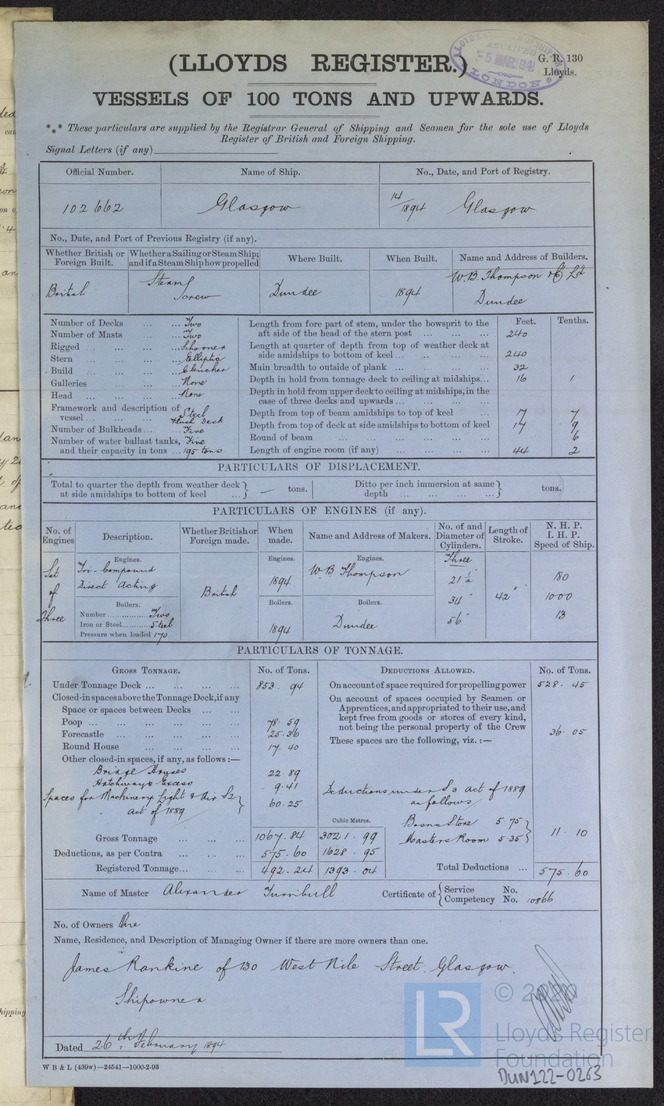 (LLOYDS REGISTER.)
G. R. 130
Lloyds.
LONDON
VESSELS OF 100 TONS AND UPWARDS.
*** These particulars are supplied by the Registrar General of Shipping and Seamen for the sole use of Lloyds
Register of British and Foreign Shipping.
Signal Letters (if any)
Official Number. Name of Ship. No., Date, and Port of Registry.
102662 Glasgow 14/1894 Glasgow
No., Date, and Port of Previous Registry (if any).
Whether British or Foreign Built. Whether a Sailing or Steam Ship; and if a Steam Ship how propelled Where Built. When Built. Name and Address of Builders.
British Steam Screw Dundee 1894 W.B. Thompson & Co Ltd Dundee
Number of Decks ... ... Two
Number of Masts ... ... Two
Rigged ... ... ... Schooner
Stern ... ... ... Elliptic
Build ... ... ... Clencher
Galleries ... ... None
Head ... ... ... None
Framework and description of vessel ... ... ... Steel Flush Deck
Number of Bulkheads ... ... Five
Number of water ballast tanks, Five
and their capacity in tons ... 195 tons
Feet. Tenths.
Length from fore part of stem, under the bowsprit to the aft side of the head of the stern post ... ... ... 240
Length at quarter of depth from top of weather deck at side amidships to bottom of keel ... ... ... ... 240
Main breadth to outside of plank ... ... ... ... 32
Depth in hold from tonnage deck to ceiling at midships ... 16 1
Depth in hold from upper deck to ceiling at midships, in the case of three decks and upwards ... ... ...
Depth from top of beam amidships to top of keel 17 7
Depth from top of deck at side amidships to bottom of keel 17 9
Round of beam ... ... ... ... 6
Length of engine room (if any) ... ... ... ... 44 2
PARTICULARS OF DISPLACEMENT.
Total to quarter the depth from weather deck at side amidships to bottom of keel ... — tons.
Ditto per inch immersion at same depth ... ... ... tons.
PARTICULARS OF ENGINES (if any).
No. of Engines Description. Whether British or Foreign made. When made. Name and Address of Makers. No. of and Diameter of Cylinders. Length of Stroke. N. H. P. I. H. P. Speed of Ship.
Engines. Engines. Engines. Three
Set of Three Tri-Compound Direct Acting British 1894 W B Thompson 21½" 34" 56" 42" 180 1000 13
Boilers. Boilers. Boilers.
Number ... Two
Iron or Steel ... Steel
Pressure when loaded 170
1894 Dundee
PARTICULARS OF TONNAGE.
GROSS TONNAGE. No. of Tons. DEDUCTIONS ALLOWED. No. of Tons.
Under Tonnage Deck ... ... ... ... 853.94
Closed-in spaces above the Tonnage Deck, if any
Space or spaces between Decks ... ...
Poop ... ... ... ... ... 78.59
Forecastle ... ... ... ... 25.36
Round House ... ... ... ... 17.40
Other closed-in spaces, if any, as follows:—
Bridge Houses 22.89
Hatchways Excess 9.41
Spaces for Machinery Light & Air S2 Act of 1889 60.25
Cubic Metres.
Gross Tonnage ... ... ... 1067.84 3021.99
Deductions, as per Contra ... ... ... 575.60 1628.95
Registered Tonnage ... ... ... 492.24 1393.04
On account of space required for propelling power 528.45
On account of spaces occupied by Seamen or
Apprentices, and appropriated to their use, and
kept free from goods or stores of every kind,
not being the personal property of the Crew 36.05
These spaces are the following, viz.:—
Deductions under S3 Act of 1889
as follows
Bosns Store 5.75
Masters Room 5.35
11.10
Total Deductions ... 575.60
Name of Master Alexander Turnbull Certificate of Service No. Competency No. 10866
No. of Owners One
Name, Residence, and Description of Managing Owner if there are more owners than one.
James Rankine of 130 West Nile Street Glasgow.
Shipowner
Dated 26th February 1894
W B & L (439w)—24541—1000-2-93
LR
Lloyds Register
Foundation
DUN122-0263